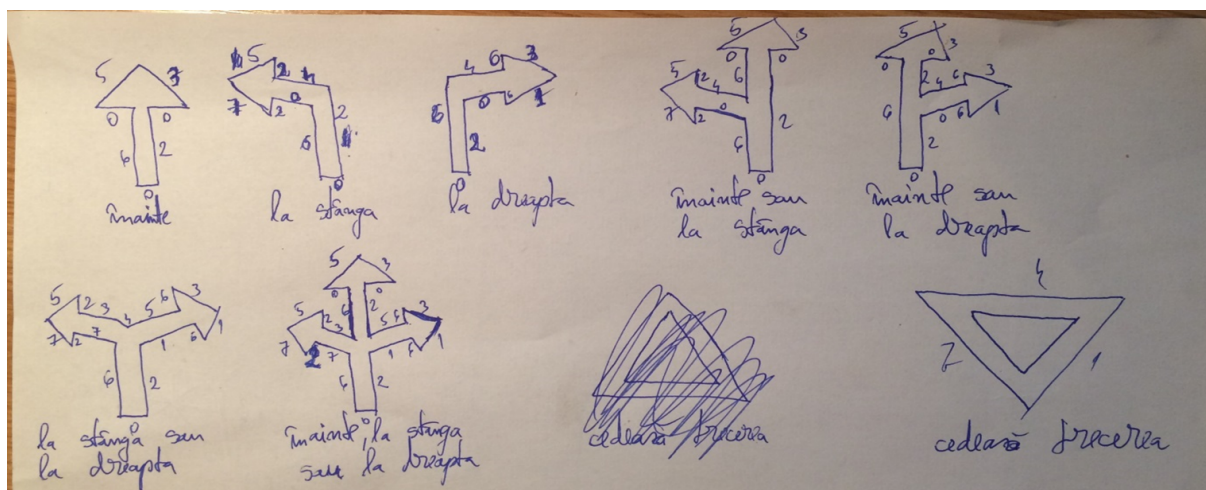 5 3
0 0
6 2
0
înainte
1 5 2 4
7 2 0 2
6 1
0
la stânga
4 6 3
6 0 6 1
2
0
la dreapta
5 3
0 0
5 2 4 6
7 2 0
6 2
0
înainte sau
la stânga
5 3
0 0
6 2 4 6 3
0 6 1
2
0
înainte sau
la dreapta
5 2 3 4 5 6 3
7 2 7 1 6 1
6 2
0
la stânga sau
la dreapta
5 3
0 0
6 2
5 2 3 5 6 3
7 2 7 1 6 1
6 2
0
înainte, la stânga
sau la dreapta
cedează trecerea
4
7 1
cedează trecerea